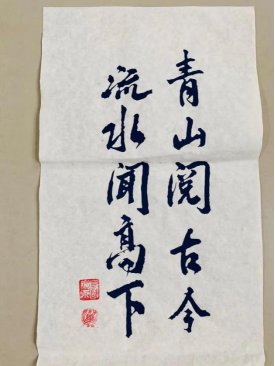 青山阅古今
流水闻高下